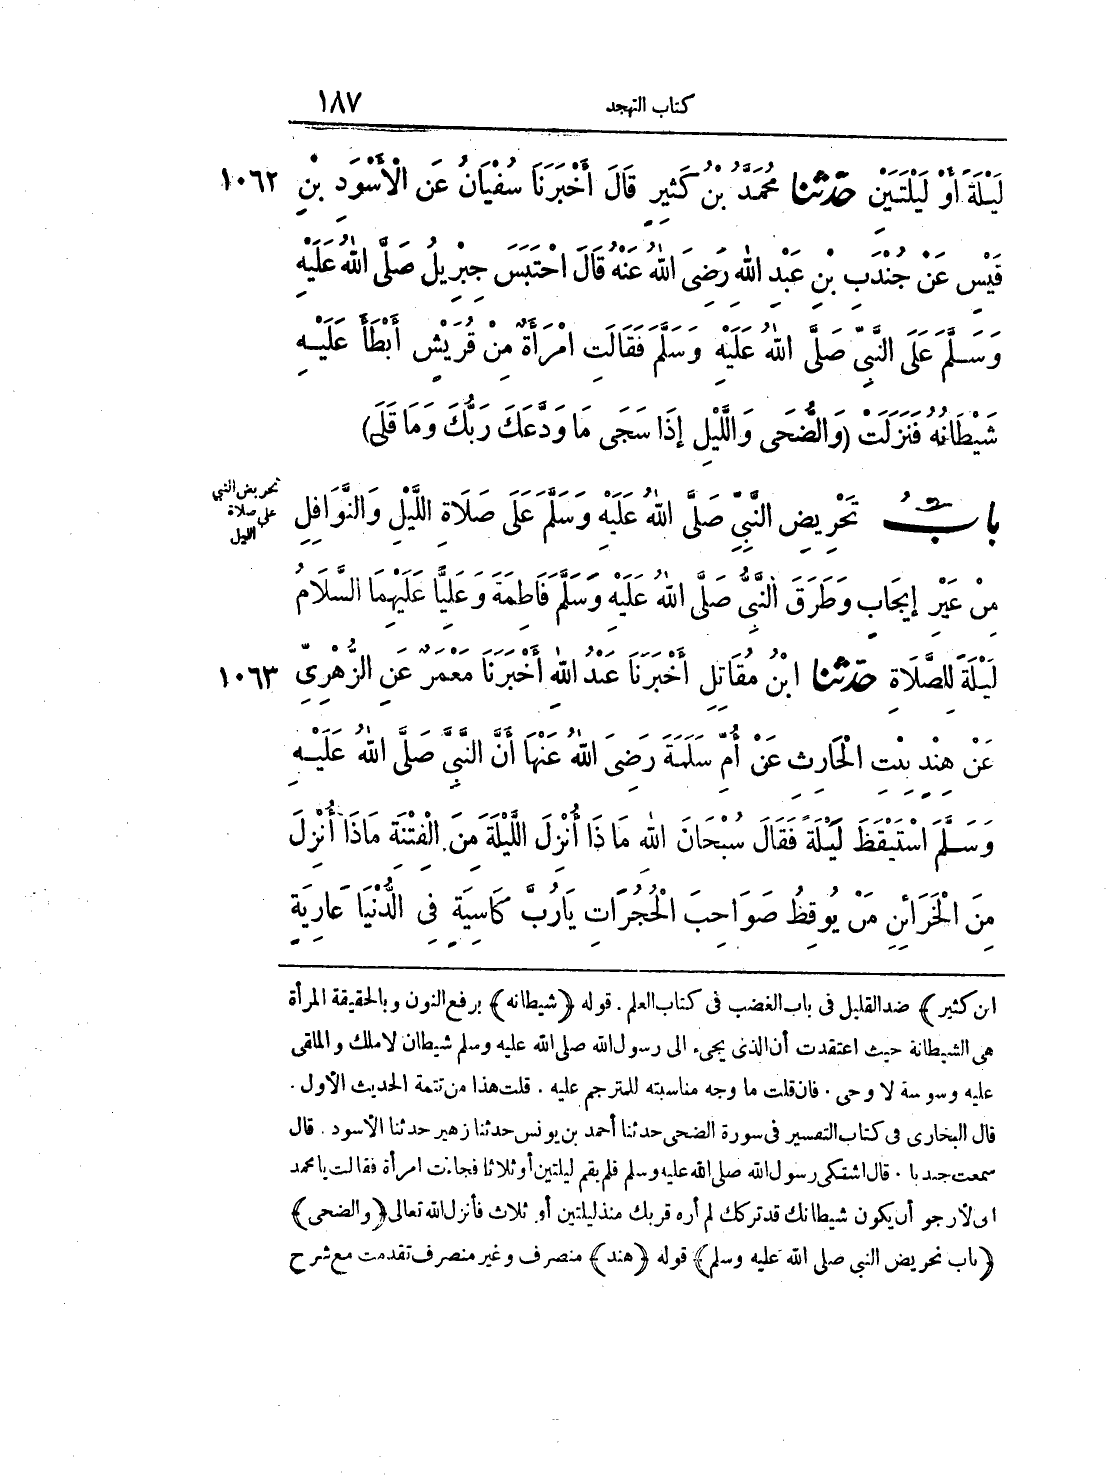 كتاب التهجد ١٨٧
لَيْلَةً أَوْ لَيْلَتَيْنِ حَدَّثَنَا مُحَمَّدُ بْنُ كَثِيرٍ قَالَ أَخْبَرَنَا سُفْيَانُ عَنِ الْأَسْوَدِ بْنِ ١٠٦٢
قَيْسٍ عَنْ جُنْدَبِ بْنِ عَبْدِ اللهِ رَضِيَ اللهُ عَنْهُ قَالَ احْتَبَسَ جِبْرِيلُ صَلَّى اللهُ عَلَيْهِ
وَسَلَّمَ عَلَى النَّبِيِّ صَلَّى اللهُ عَلَيْهِ وَسَلَّمَ فَقَالَتِ امْرَأَةٌ مِنْ قُرَيْشٍ أَبْطَأَ عَلَيْهِ
شَيْطَانُهُ فَنَزَلَتْ (وَالضُّحَى وَاللَّيْلِ إِذَا سَجَى مَا وَدَّعَكَ رَبُّكَ وَمَا قَلَى)
بَابُ تَحْرِيضِ النَّبِيِّ صَلَّى اللهُ عَلَيْهِ وَسَلَّمَ عَلَى صَلَاةِ اللَّيْلِ وَالنَّوَافِلِ
تحريض النبي
على صلاة
الليل
مِنْ غَيْرِ إِيجَابٍ وَطَرَقَ النَّبِيُّ صَلَّى اللهُ عَلَيْهِ وَسَلَّمَ فَاطِمَةَ وَعَلِيًّا عَلَيْهِمَا السَّلَامُ
لَيْلَةً لِلصَّلَاةِ حَدَّثَنَا ابْنُ مُقَاتِلٍ أَخْبَرَنَا عَبْدُ اللهِ أَخْبَرَنَا مَعْمَرٌ عَنِ الزُّهْرِيِّ ١٠٦٣
عَنْ هِنْدٍ بِنْتِ الْحَارِثِ عَنْ أُمِّ سَلَمَةَ رَضِيَ اللهُ عَنْهَا أَنَّ النَّبِيَّ صَلَّى اللهُ عَلَيْهِ
وَسَلَّمَ اسْتَيْقَظَ لَيْلَةً فَقَالَ سُبْحَانَ اللهِ مَاذَا أُنْزِلَ اللَّيْلَةَ مِنَ الْفِتْنَةِ مَاذَا أُنْزِلَ
مِنَ الْخَزَائِنِ مَنْ يُوقِظُ صَوَاحِبَ الْحُجُرَاتِ يَارُبَّ كَاسِيَةٍ فِي الدُّنْيَا عَارِيَةٍ
ابن كثير﴾ ضد القليل فى باب الغضب فى كتاب العلم . قوله ﴿شيطانه﴾ برفع النون وبالحقيقة المرأة
هى الشيطانة حيث اعتقدت أن الذى يجىء الى رسول الله صلى الله عليه وسلم شيطان لا ملك والملقى
عليه وسوسة لا وحى . فان قلت ما وجه مناسبته للمترجم عليه . قلت هذا من تتمة الحديث الأول .
قال البخارى فى كتاب التفسير فى سورة الضحى حدثنا أحمد بن يونس حدثنا زهير حدثنا الأسود . قال
سمعت جندبا . قال اشتكى رسول الله صلى الله عليه وسلم فلم يقم ليلتين أو ثلاثا فجاءت امرأة فقالت يا محمد
انى لأرجو أن يكون شيطانك قد تركك لم أره قربك منذ ليلتين أو ثلاث فأنزل الله تعالى ﴿والضحى﴾
﴿باب تحريض النبي صلى الله عليه وسلم﴾ قوله ﴿هند﴾ منصرف وغير منصرف تقدمت مع شرح